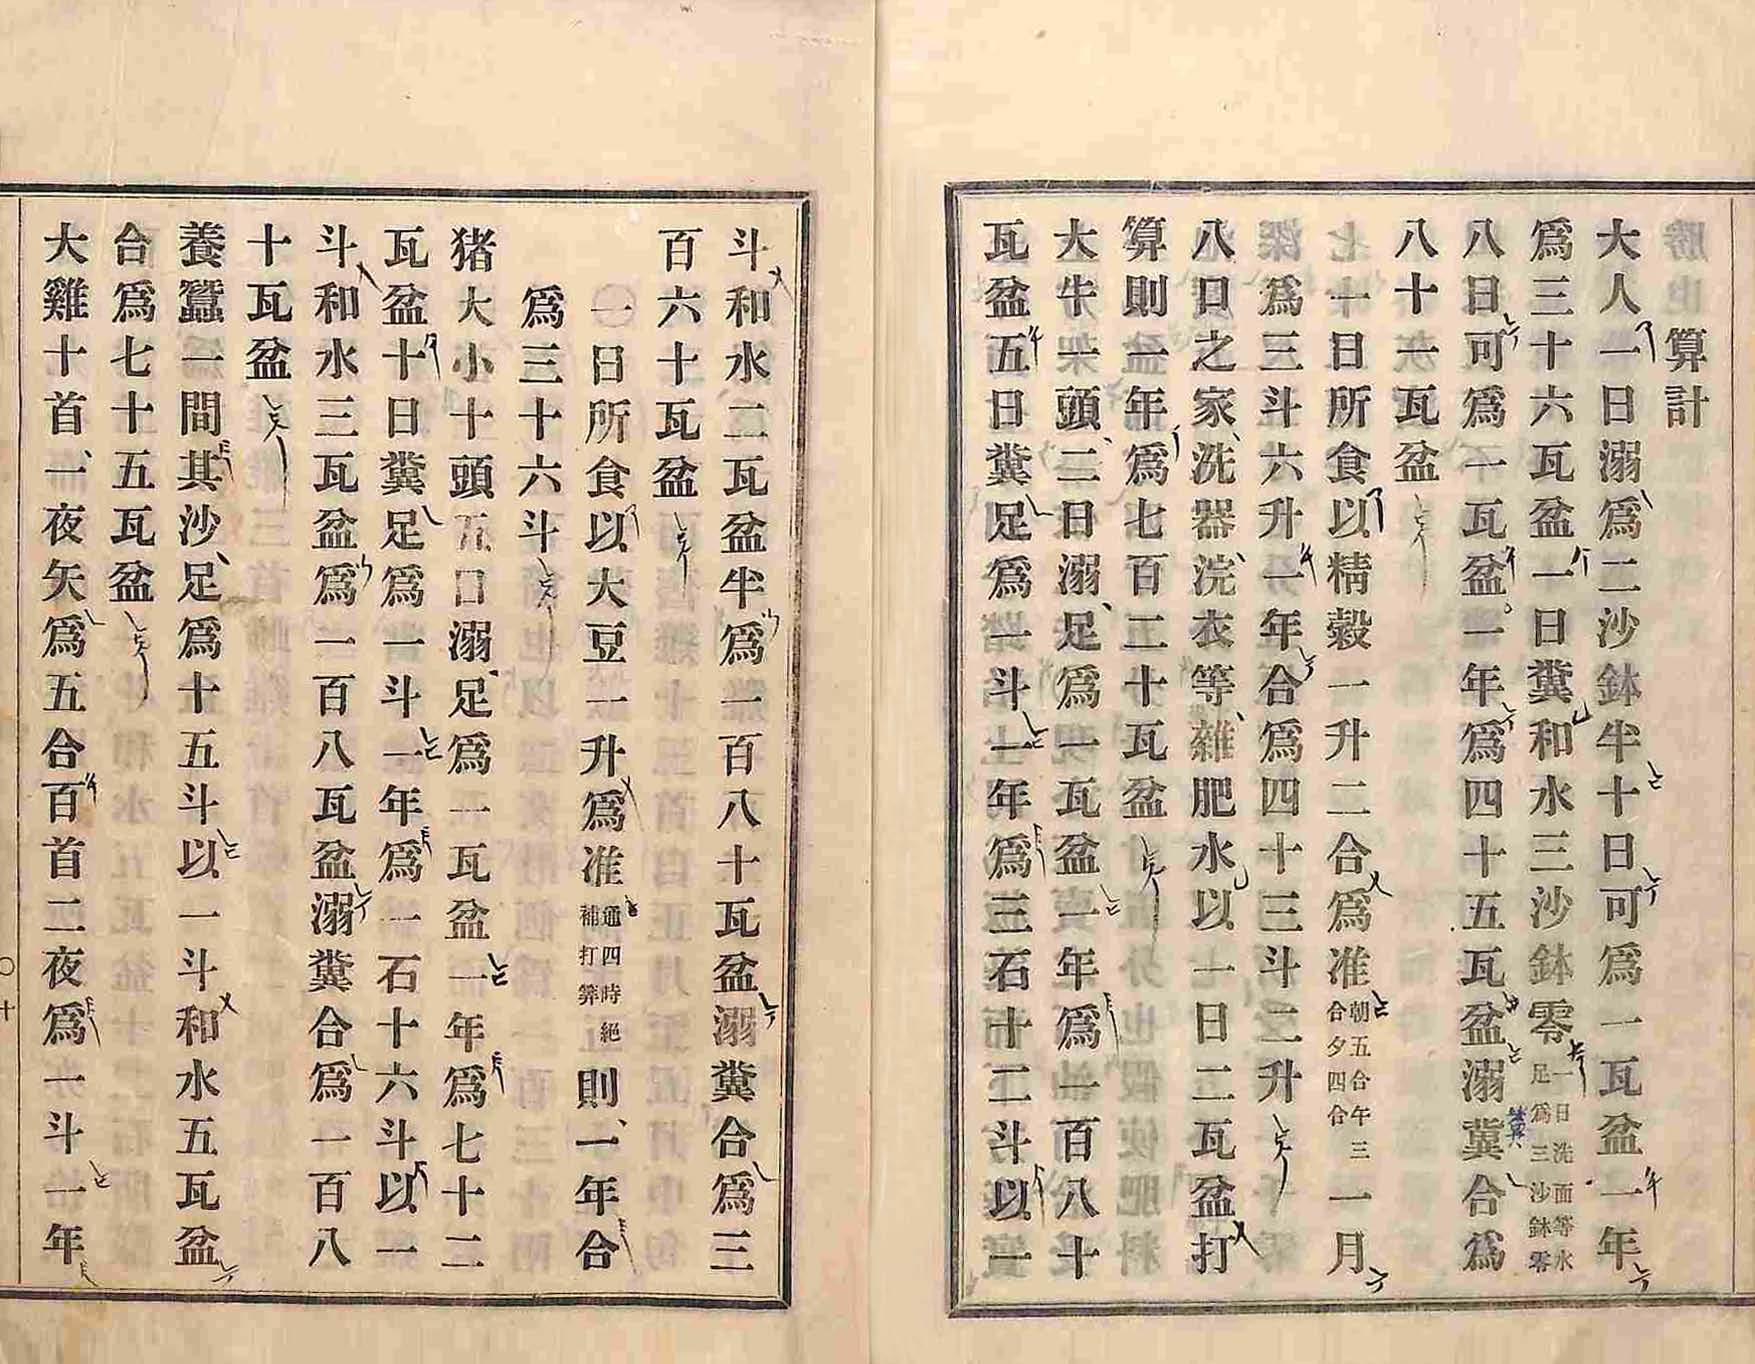 算計
大人一日溺爲二沙鉢半十日可爲一瓦盆一年
爲三十六瓦盆一日糞和水三沙鉢零一日洗面等水足爲三沙鉢零
八日可爲一瓦盆一年爲四十五瓦盆溺冀合爲
八十一瓦盆
一日所食以精穀一升二合爲准朝五合午三合夕四合一月
爲三斗六升一年合爲四十三斗二升
八口之家洗器浣衣等雜肥水以一日二瓦盆打
算則一年爲七百二十瓦盆
大牛一頭二日溺足爲一瓦盆一年爲一百八十
瓦盆五日糞足爲一斗一年爲三石十二斗以一
斗和水二瓦盆半爲一百八十瓦盆溺糞合爲三
百六十瓦盆
一日所食以大豆一升爲准通四時絕補打算則一年合
爲三十六斗
猪大小十頭五口溺足爲一瓦盆一年爲七十二
瓦盆十日糞足爲一斗一年爲一石十六斗以一
斗和水三瓦盆爲一百八瓦盆溺糞合爲一百八
十瓦盆
養蠶一間其沙足爲十五斗以一斗和水五瓦盆
合爲七十五瓦盆
大雞十首一夜矢爲五合百首二夜爲一斗一年
〇十